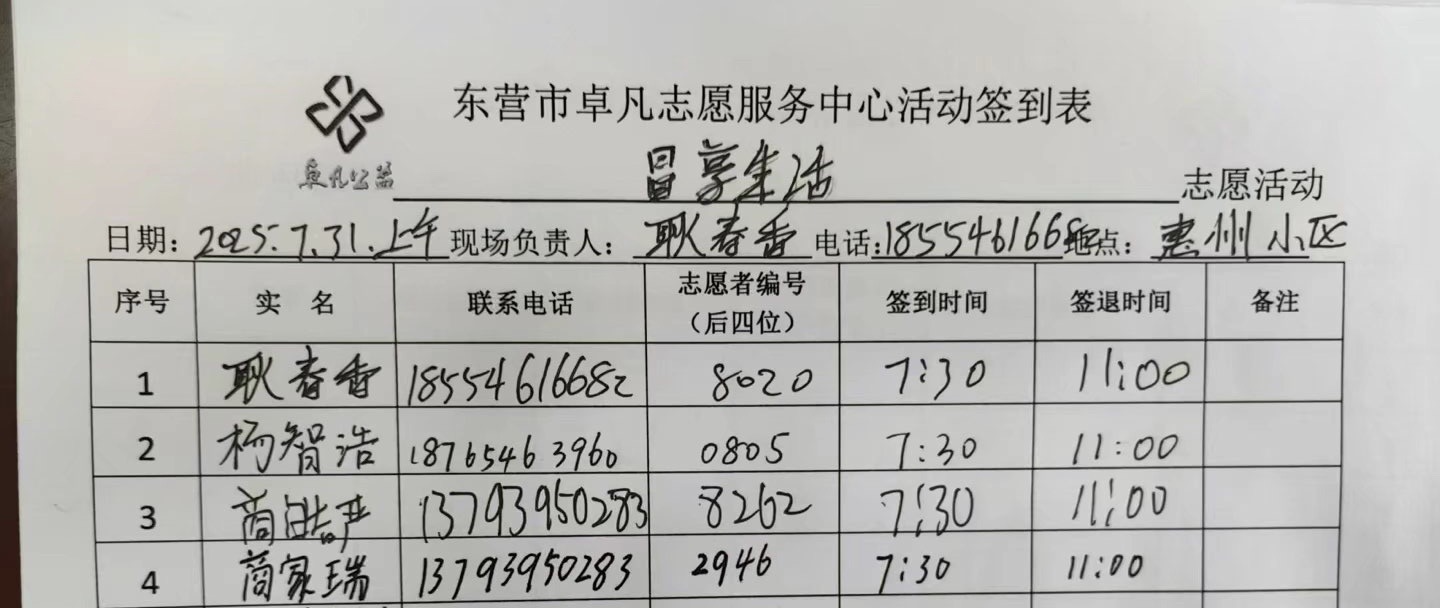 东营市卓凡志愿服务中心活动签到表
卓凡公益
冒享生活 志愿活动
日期: 2025.7.31.上午 现场负责人: 耿春香 电话:1855461668 地点: 惠州小区
序号 实 名 联系电话 志愿者编号(后四位) 签到时间 签退时间 备注
1 耿春香 18554616682 8020 7:30 11:00
2 杨智浩 18765463960 0805 7:30 11:00
3 商 13793950283 8262 7:30 11:00
4 商家瑞 13793950283 2946 7:30 11:00